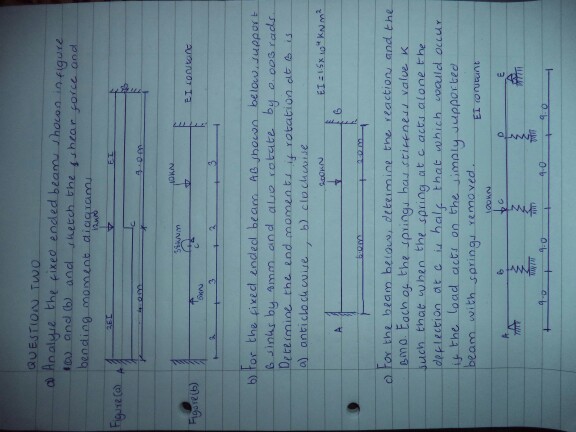 QUESTION TWO
a) Analyse the fixed ended beams shown in figure
(a) and (b) and sketch the shear force and
bending moment diagrams
Figure(a) A 2EI 12kN C EI B
4.0m 4.0m
Figure(b) 6kN C 10kN EI constant
2 3 2 3
b) For the fixed ended beam AB shown below, support
B sinks by 9mm and also rotate by 0.003 rads.
Determine the end moments if rotation at B is
a) anticlockwise, b) clockwise
EI = 1.5 x 10⁴ kNm²
A 200kN B
6.0m 3.0m
c) For the beam below, determine the reaction and the
BMD. Each of the springs has stiffness value K
such that when the spring at C acts alone the
deflection at C is half that which would occur
if the load acts on the simply supported
beam with springs removed.
EI constant
100kN
A B C D E
9.0 9.0 9.0 9.0